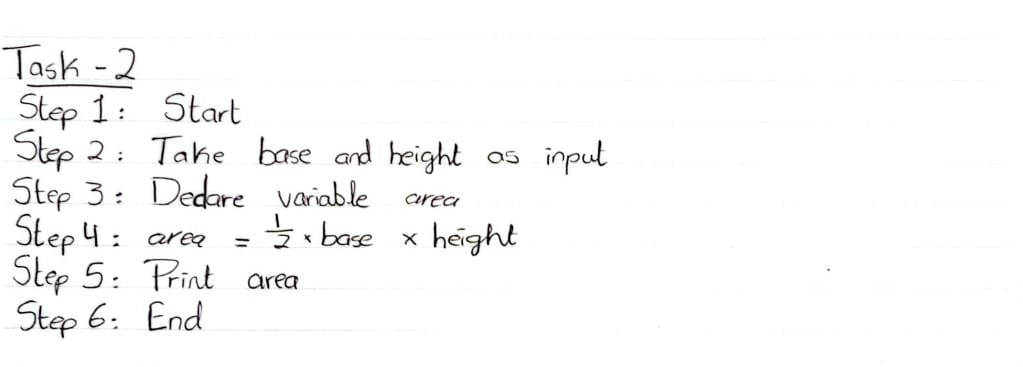 Task - 2
Step 1 : Start
Step 2 : Take base and height as input
Step 3 : Declare variable area
Step 4 : area = 1/2 × base × height
Step 5 : Print area
Step 6 : End